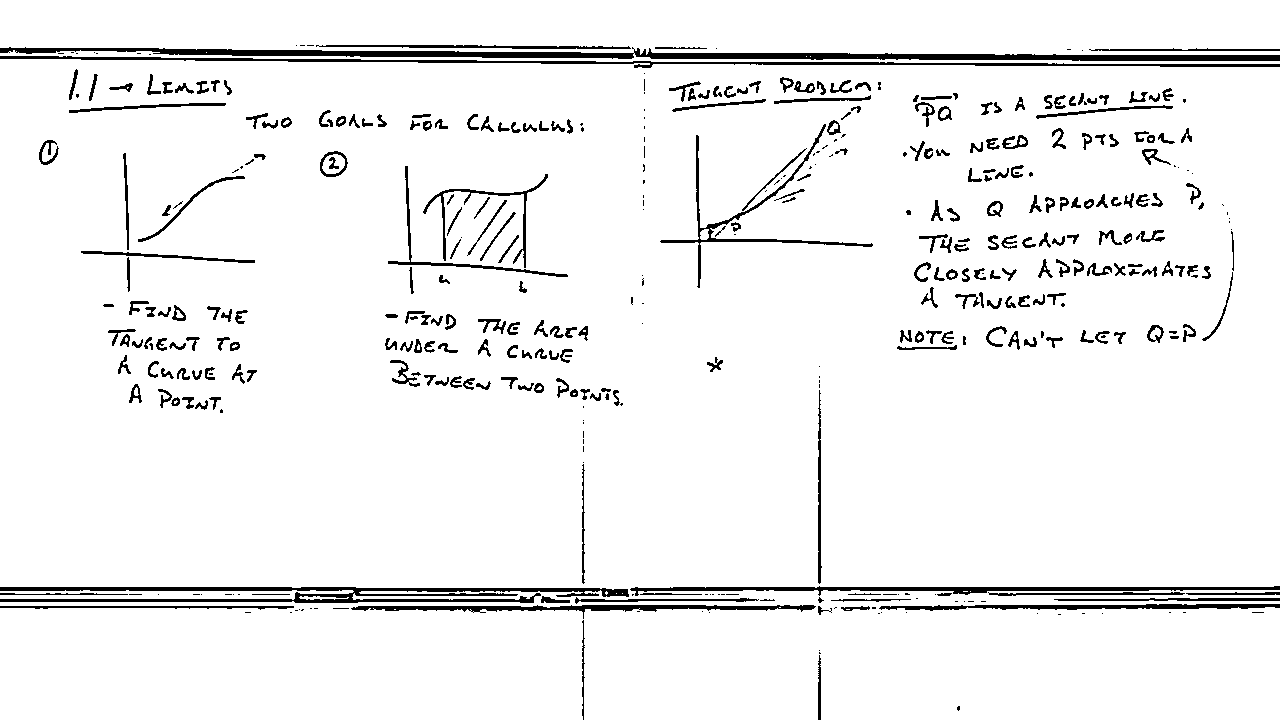 1.1 → LIMITS
TWO GOALS FOR CALCULUS:
①
- FIND THE
TANGENT TO
A CURVE AT
A POINT.
②
a b
- FIND THE AREA
UNDER A CURVE
BETWEEN TWO POINTS.
TANGENT PROBLEM:
Q
P
*
"PQ" IS A SECANT LINE.
• YOU NEED 2 PTS FOR A
LINE.
• AS Q APPROACHES P,
THE SECANT MORE
CLOSELY APPROXIMATES
A TANGENT.
NOTE: CAN'T LET Q=P